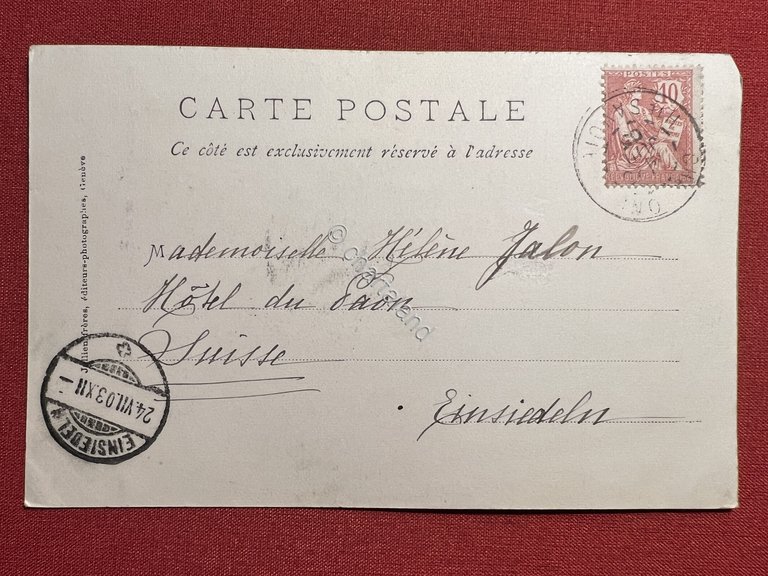 CARTE POSTALE
Ce côté est exclusivement réservé à l'adresse
10
POSTES
Mademoiselle Hélène Jalon
Hôtel du Paon
Suisse
Einsiedeln
Jullien frères, éditeurs-photographes, Genève
EINSIEDELN
24.VII.03.XII